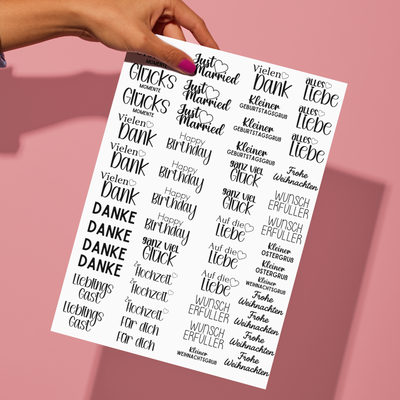 Glücks
MOMENTE
Glücks
MOMENTE
Vielen
Dank
Vielen
Dank
Vielen
Dank
DANKE
DANKE
DANKE
DANKE
Lieblings
Gast
Lieblings
Gast
Just
Married
Just
Married
Just
Married
Happy
Birthday
Happy
Birthday
Happy
Birthday
ganz viel
Glück
Hochzeit
Hochzeit
Hochzeit
Für dich
Für dich
Vielen
Dank
Kleiner
GEBURTSTAGSGRUß
Kleiner
GEBURTSTAGSGRUß
Kleiner
GEBURTSTAGSGRUß
ganz viel
Glück
ganz viel
Glück
Auf die
Liebe
Auf die
Liebe
Auf die
Liebe
WUNSCH
ERFÜLLER
WUNSCH
ERFÜLLER
Kleiner
WEIHNACHTSGRUß
ALLES
Liebe
ALLES
Liebe
ALLES
Liebe
Frohe
Weihnachten
WUNSCH
ERFÜLLER
WUNSCH
ERFÜLLER
Kleiner
OSTERGRUß
Kleiner
OSTERGRUß
Kleiner
WEIHNACHTSGRUß
Frohe
Weihnachten
Frohe
Weihnachten
Frohe
Weihnachten